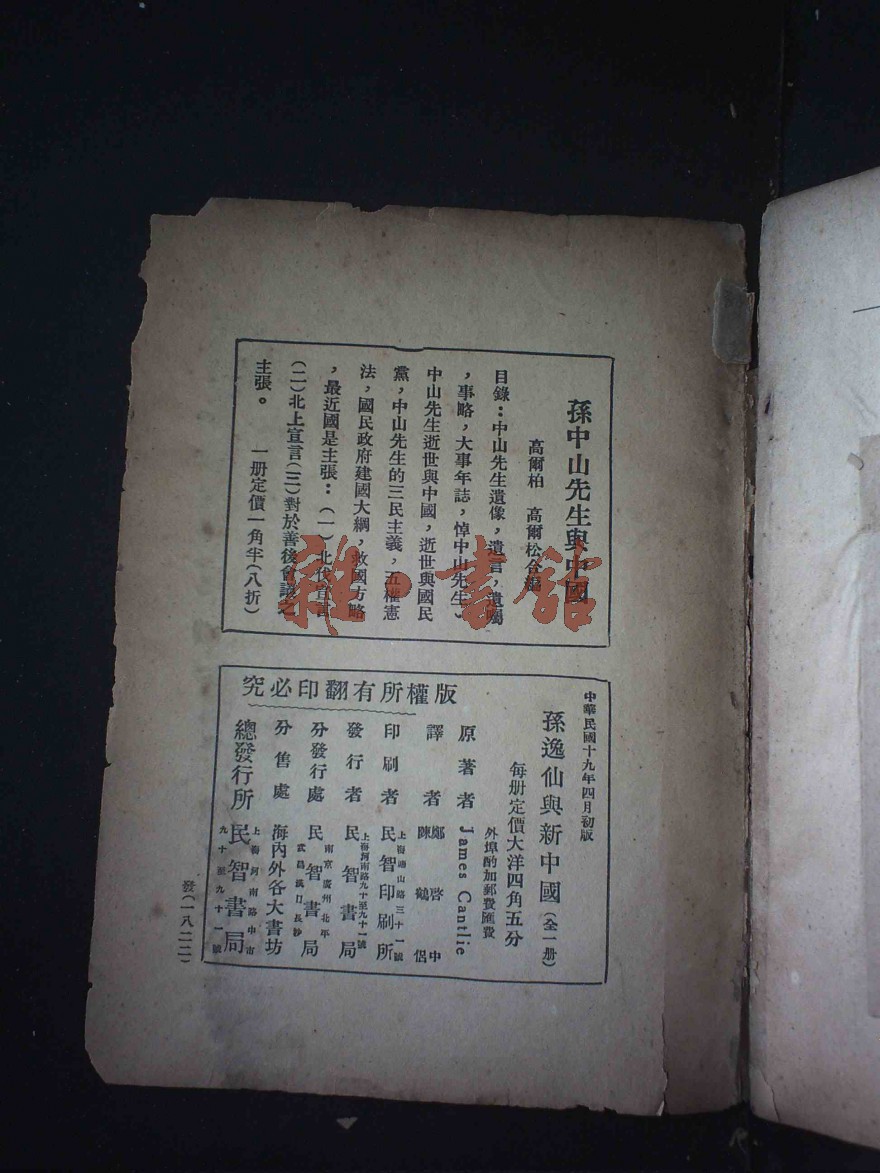 孫中山先生與中國
高爾柏　高爾松合編
目錄：中山先生遺像，遺言，遺囑
，事略，大事年誌，悼中山先生，
中山先生逝世與中國，逝世與國民
黨，中山先生的三民主義，五權憲
法，國民政府建國大綱，救國方略
，最近國是主張：（一）北伐宣言
（二）北上宣言（三）對於善後會議之
主張。　一册定價一角半（八折）
雜·書館
版權所有翻印必究
中華民國十九年四月初版
孫逸仙與新中國（全一册）
每册定價大洋四角五分
外埠酌加郵費匯費
原著者　James Cantlie
譯者　鄭啓中　陳鶴侶
印刷者　民智印刷所　上海唐山路三十一號
發行者　民智書局　上海河南路九十至九十一號
分發行處　民智書局　南京廣州北平武昌漢口長沙
分售處　海內外各大書坊
總發行所　民智書局　上海河南路中市九十至九十一號
發（一八二二）